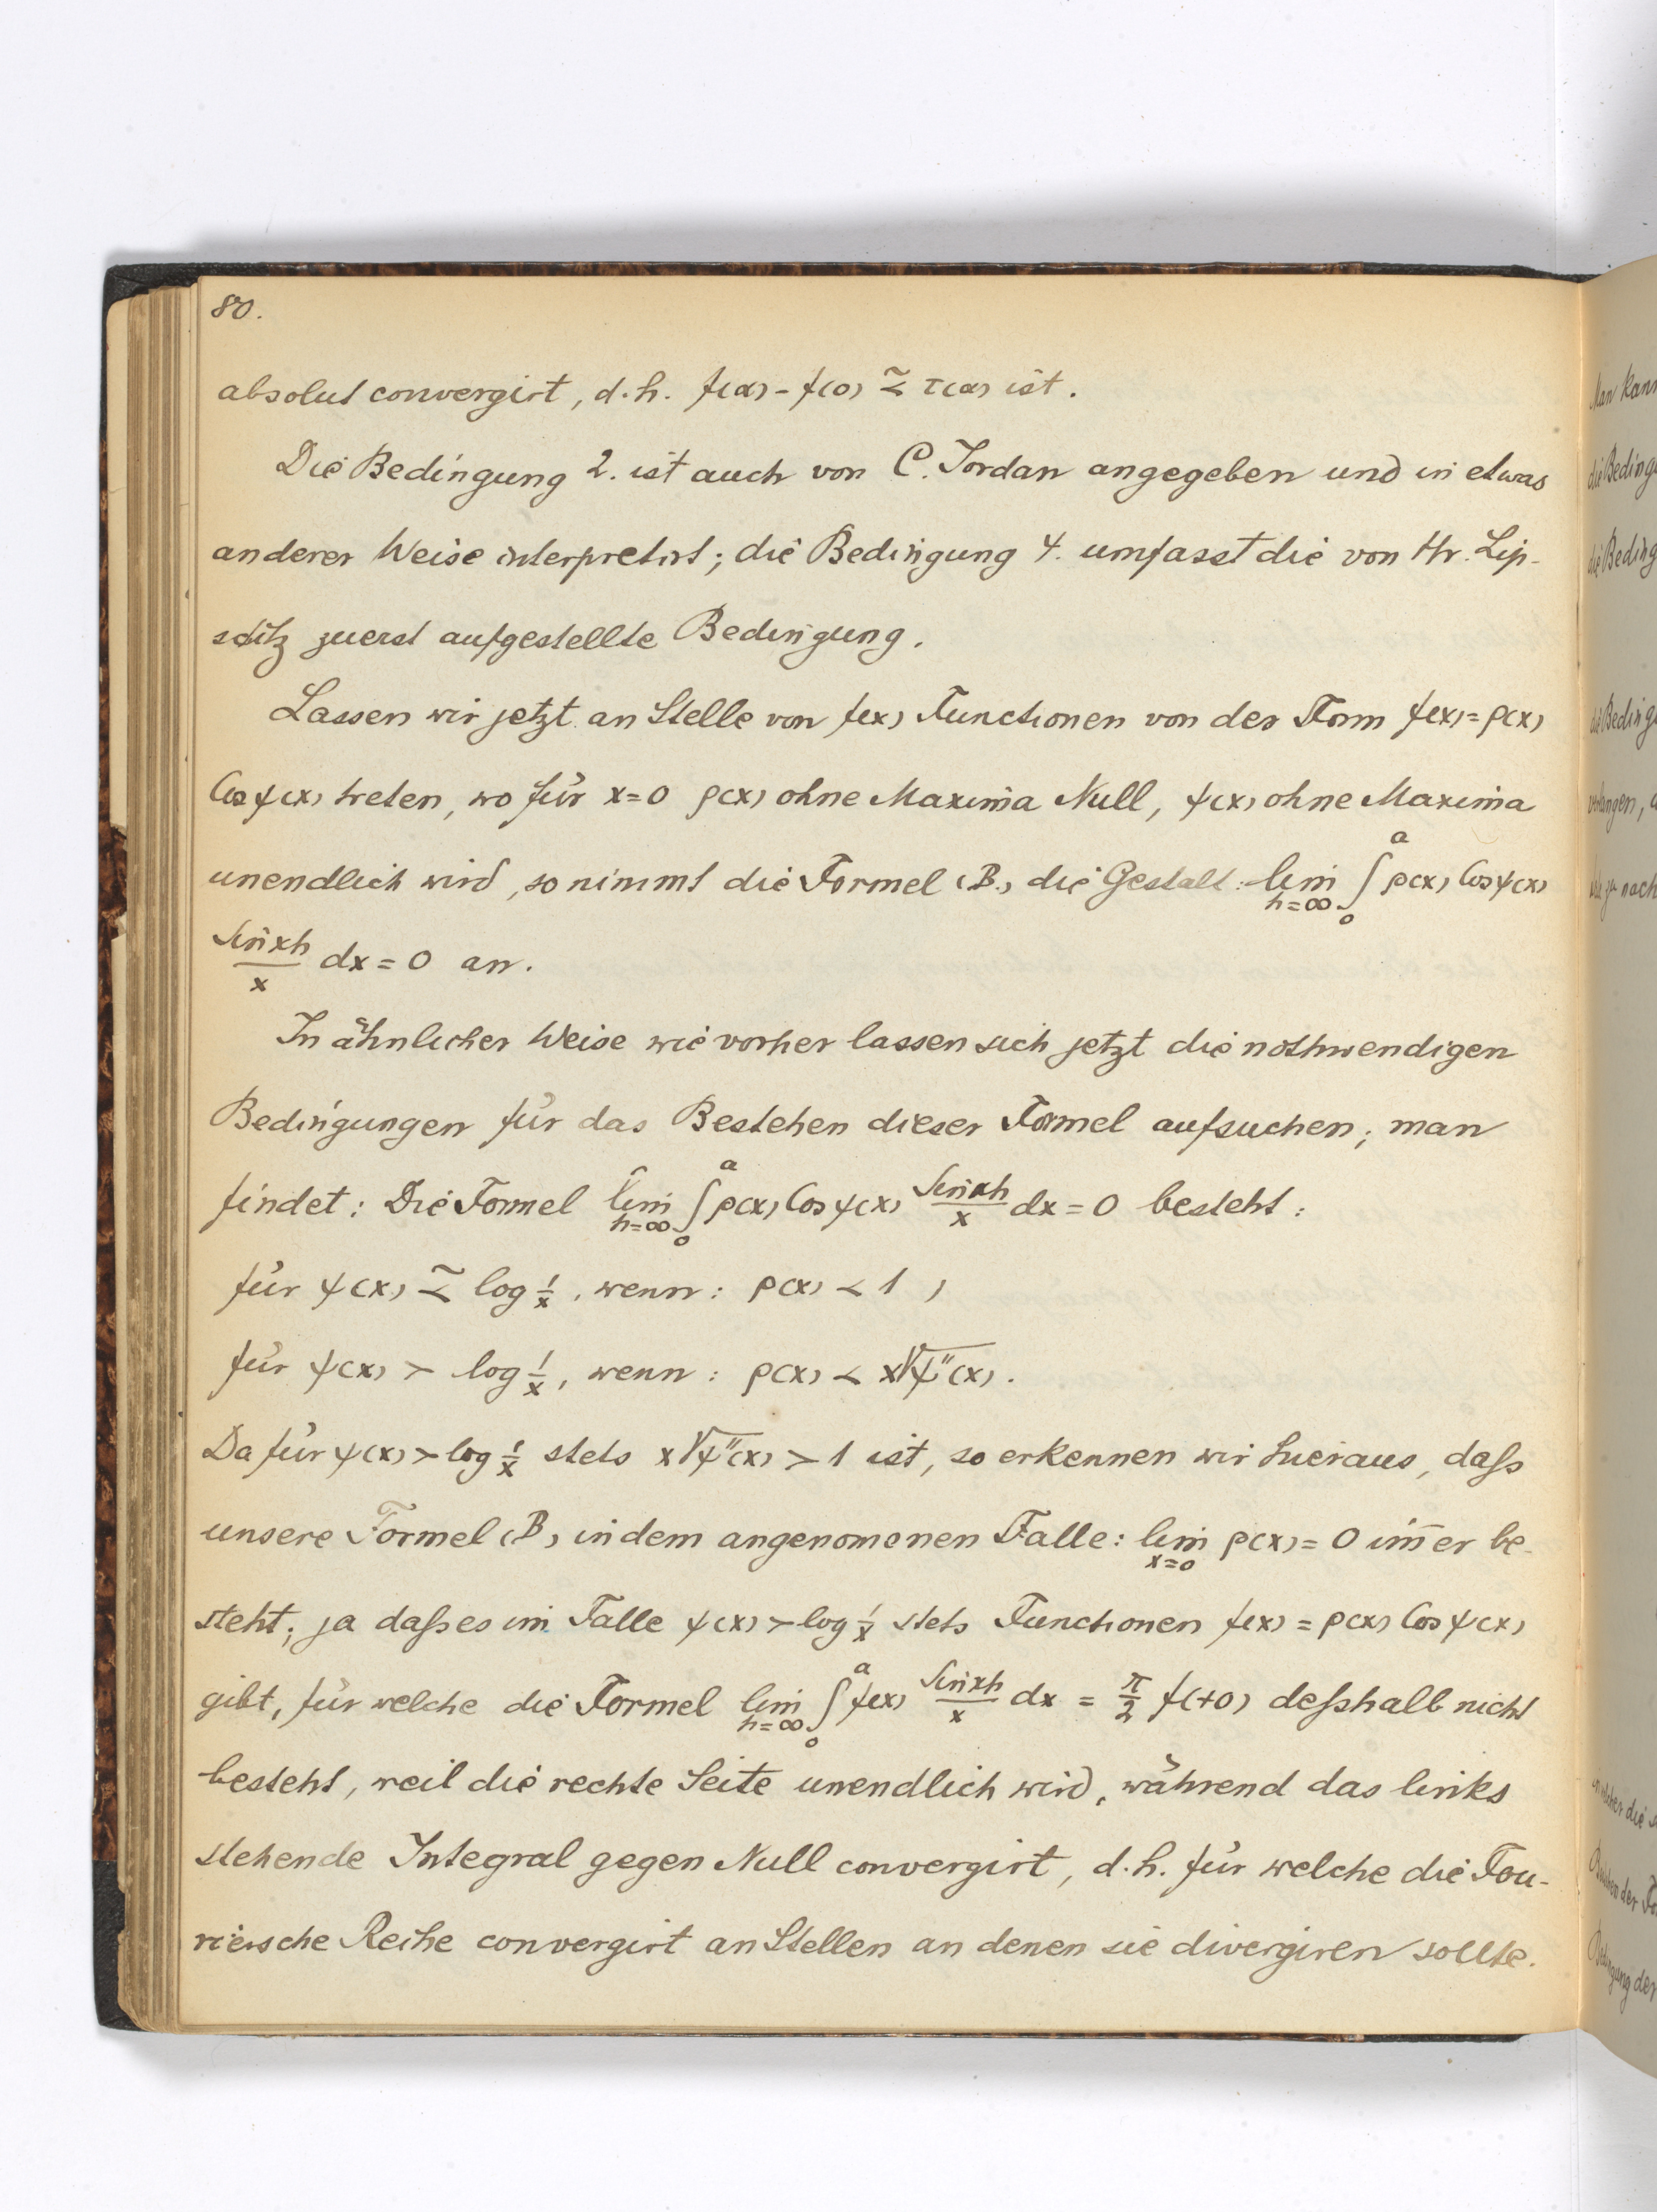 80.
absolut convergirt, d.h. f(α) - f(0) ≾ τ(α) ist.
Die Bedingung 2. ist auch von C. Jordan angegeben und in etwas
anderer Weise interpretirt; die Bedingung 4. umfasst die von Hr. Lip-
schitz zuerst aufgestellte Bedingung.
Lassen wir jetzt an Stelle von f(x) Functionen von der Form f(x) = ρ(x)
Cos ψ(x) treten, wo für x=0 ρ(x) ohne Maxima Null, ψ(x) ohne Maxima
unendlich wird, so nimmt die Formel (B.) die Gestalt: lim_{h=∞} ∫_0^a ρ(x) Cos ψ(x)
\frac{Sin xh}{x} dx = 0 an.
In ähnlicher Weise wie vorher lassen sich jetzt die nothwendigen
Bedingungen für das Bestehen dieser Formel aufsuchen; man
findet: Die Formel lim_{h=∞} ∫_0^a ρ(x) Cos ψ(x) \frac{Sin xh}{x} dx = 0 besteht:
für ψ(x) ≾ log 1/x, wenn: ρ(x) ≺ 1,
für ψ(x) ≻ log 1/x, wenn: ρ(x) ≺ x√ψ''(x).
Da für ψ(x) ≻ log 1/x stets x√ψ''(x) ≻ 1 ist, so erkennen wir hieraus, daſs
unsere Formel (B) in dem angenom̄enen Falle: lim_{x=0} ρ(x) = 0 im̄er be-
steht; ja daſs es im Falle ψ(x) ≻ log 1/x stets Functionen f(x) = ρ(x) Cos ψ(x)
gibt, für welche die Formel lim_{h=∞} ∫_0^a f(x) \frac{Sin xh}{x} dx = π/2 f(+0) deſshalb nicht
besteht, weil die rechte Seite unendlich wird, während das links
stehende Integral gegen Null convergirt, d.h. für welche die Fou-
rier'sche Reihe convergirt an Stellen an denen sie divergiren sollte.
Man kann
die Beding
die Beding
die Beding